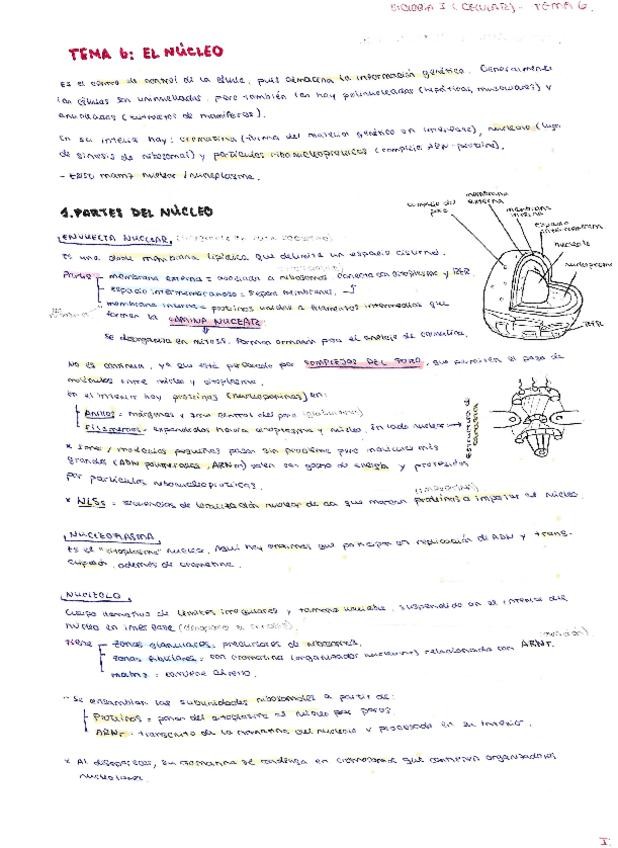 BIOLOGÍA I (CELULAR) - TEMA 6.
TEMA 6: EL NÚCLEO
Es el centro de control de la célula, pues almacena la información genética. Generalmente
las células son uninucleadas, pero también las hay polinucleadas (hepáticas, musculares) y
anucleadas (eritrocitos de mamíferos).
En su interior hay: cromatina (forma del material genético en interfase), nucleolo (lugar
de síntesis de ribosomas) y partículas ribonucleoproteicas (complejo ARN-proteína).
matriz nuclear / nucleoplasma.
1. PARTES DEL NÚCLEO
complejo del poro
membrana externa
membrana interna
espacio intermembrana
nucleolo
nucleoplasma
RER
ENVUELTA NUCLEAR.
Es una doble membrana lipídica que delimita un espacio cisternal.
Partes membrana externa = asociada a ribosomas. Conecta con citoplasma y RER.
espacio intermembranoso = separa membranas.
membrana interna = proteínas unidas a filamentos intermedios que
forman la LÁMINA NUCLEAR
Se desorganiza en mitosis. Forma armazón para el anclaje de cromatina.
No es continua, ya que está perforada por COMPLEJOS DEL PORO, que permiten el paso de
moléculas entre núcleo y citoplasma.
En el interior hay proteínas (nucleoporinas) en:
Anillos = márgenes y zona central del poro
Filamentos = expandidos hacia citoplasma y núcleo. En lado nuclear → Estructura de canasta
* Iones / moléculas pequeñas pasan sin problema pero moléculas más
grandes (ADN polimerasas, ARNm) salen con gasto de energía y
por partículas ribonucleoproteicas.
(importinas)
* NLSs = secuencias de localización nuclear de aa que marcan proteínas a importar al núcleo.
NUCLEOPLASMA
Es el "citoplasma" nuclear. Aquí hay enzimas que participan en replicación de ADN y trans-
cripción, además de cromatina.
NUCLEOLO
Cuerpo llamativo de límites irregulares y tamaño variable, suspendido en el interior del
núcleo en interfase
Tiene zonas granulares: precursores de ribosomas.
zonas fibrilares: con cromatina (organizador nucleolar) relacionada con ARNr.
matriz = contiene
- Se ensamblan las subunidades ribosomales a partir de:
Proteínas = pasan del citoplasma al núcleo por poros
ARNr - transcrito de la cromatina del nucleolo y procesado en su interior.
* Al desaparecer, su cromatina se condensa en cromosomas que contienen organizadores
nucleolares.
1.